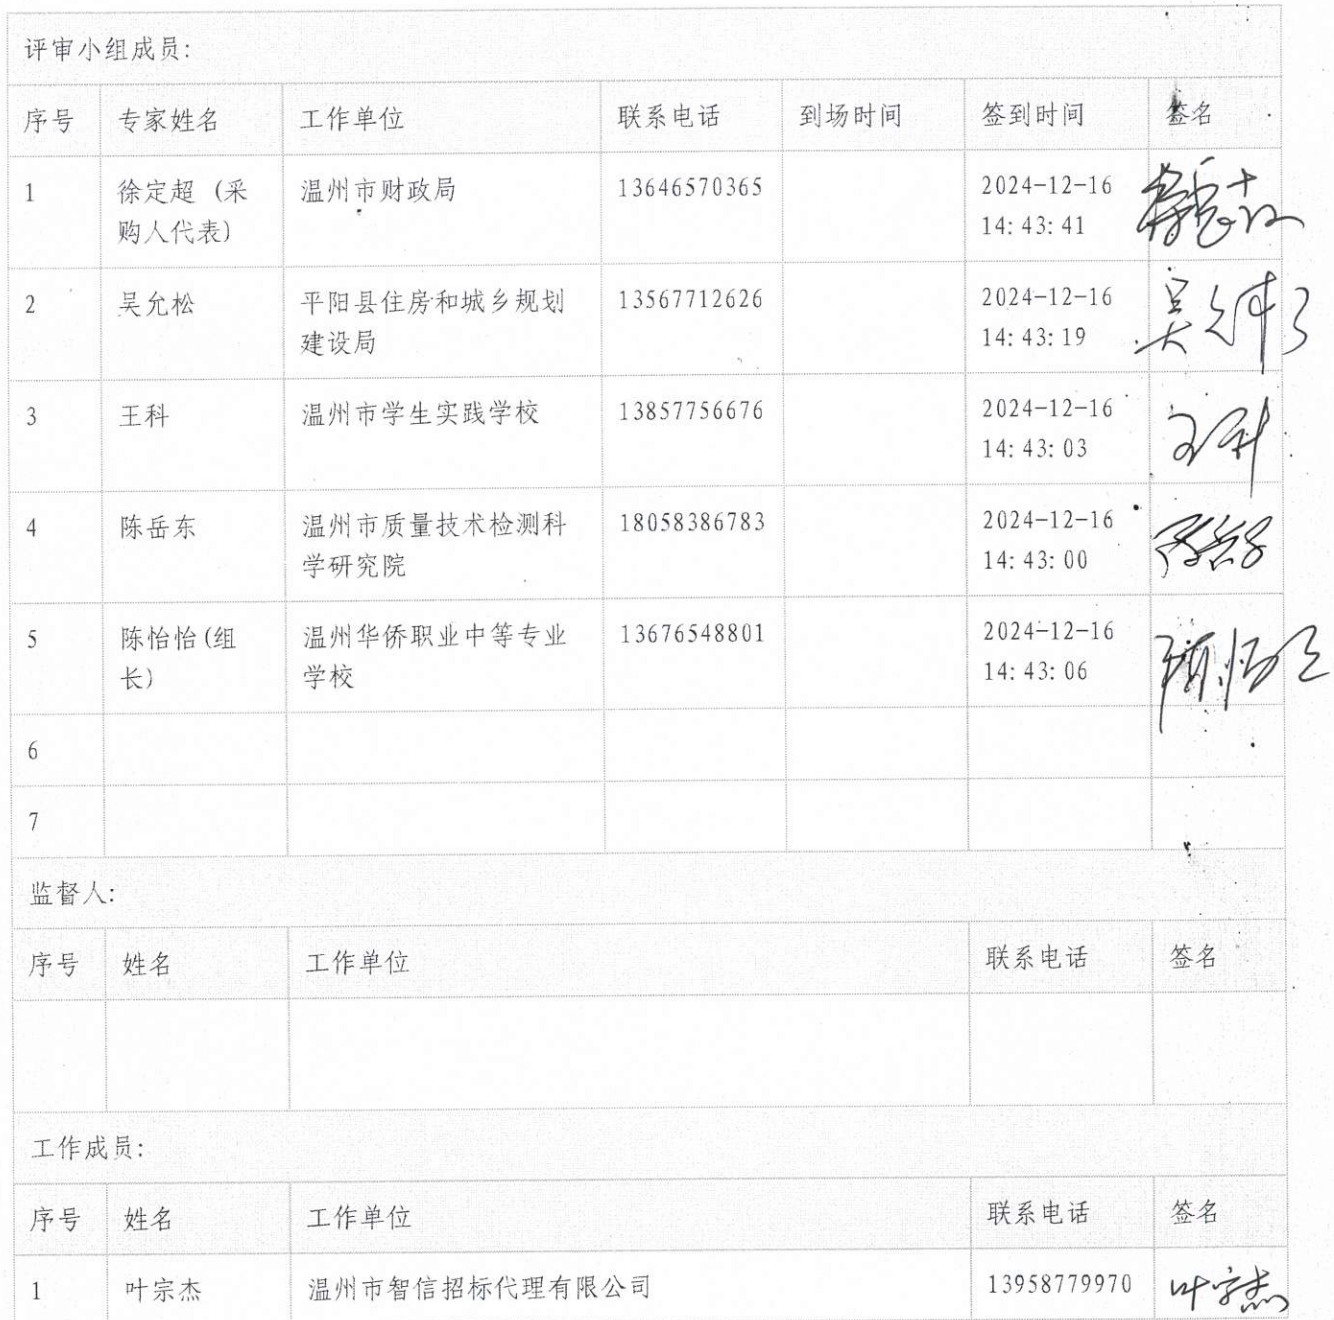 评审小组成员:
序号 专家姓名 工作单位 联系电话 到场时间 签到时间 签名
1 徐定超 (采 温州市财政局 13646570365 2024-12-16
购人代表) 14:43:41
2 吴允松 平阳县住房和城乡规划 13567712626 2024-12-16 吴允松
建设局 14:43:19
3 王科 温州市学生实践学校 13857756676 2024-12-16 王科
14:43:03
4 陈岳东 温州市质量技术检测科 18058386783 2024-12-16 陈岳东
学研究院 14:43:00
5 陈怡怡(组 温州华侨职业中等专业 13676548801 2024-12-16 陈怡怡
长) 学校 14:43:06
6
7
监督人:
序号 姓名 工作单位 联系电话 签名
工作成员:
序号 姓名 工作单位 联系电话 签名
1 叶宗杰 温州市智信招标代理有限公司 13958779970 叶宗杰